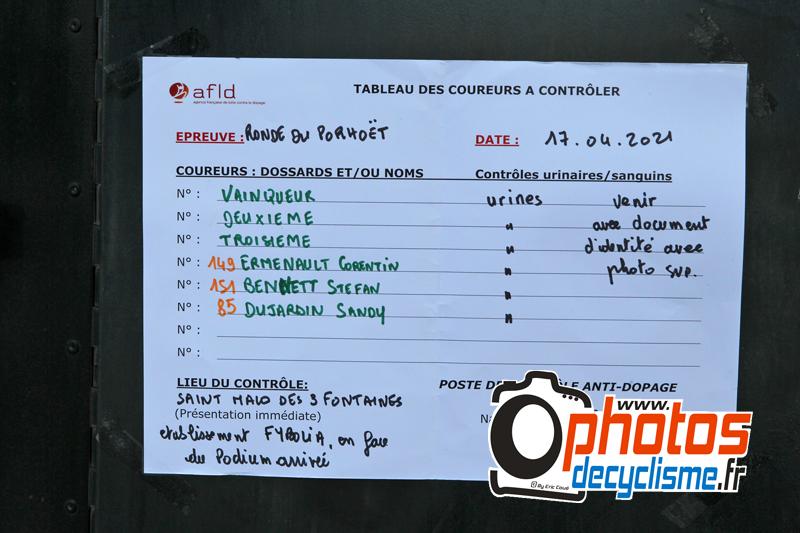 afld
agence française de lutte contre le dopage
TABLEAU DES COUREURS A CONTRÔLER
EPREUVE : RONDE DU PORHOËT
DATE : 17.04.2021
COUREURS : DOSSARDS ET/OU NOMS Contrôles urinaires/sanguins
N° : VAINQUEUR urines venir
N° : DEUXIEME " avec document
N° : TROISIEME " d'identité avec
N° : 149 ERMENAULT CORENTIN " photo svp.
N° : 151 BENNETT STEFAN "
N° : 85 DUJARDIN SANDY "
N° :
N° :
LIEU DU CONTRÔLE:
SAINT MALO DES 3 FONTAINES
(Présentation immédiate)
etablissement FYBOLIA, en face
du Podium arrivé
POSTE DE LE ANTI-DOPAGE
www.
photos
decyclisme.fr